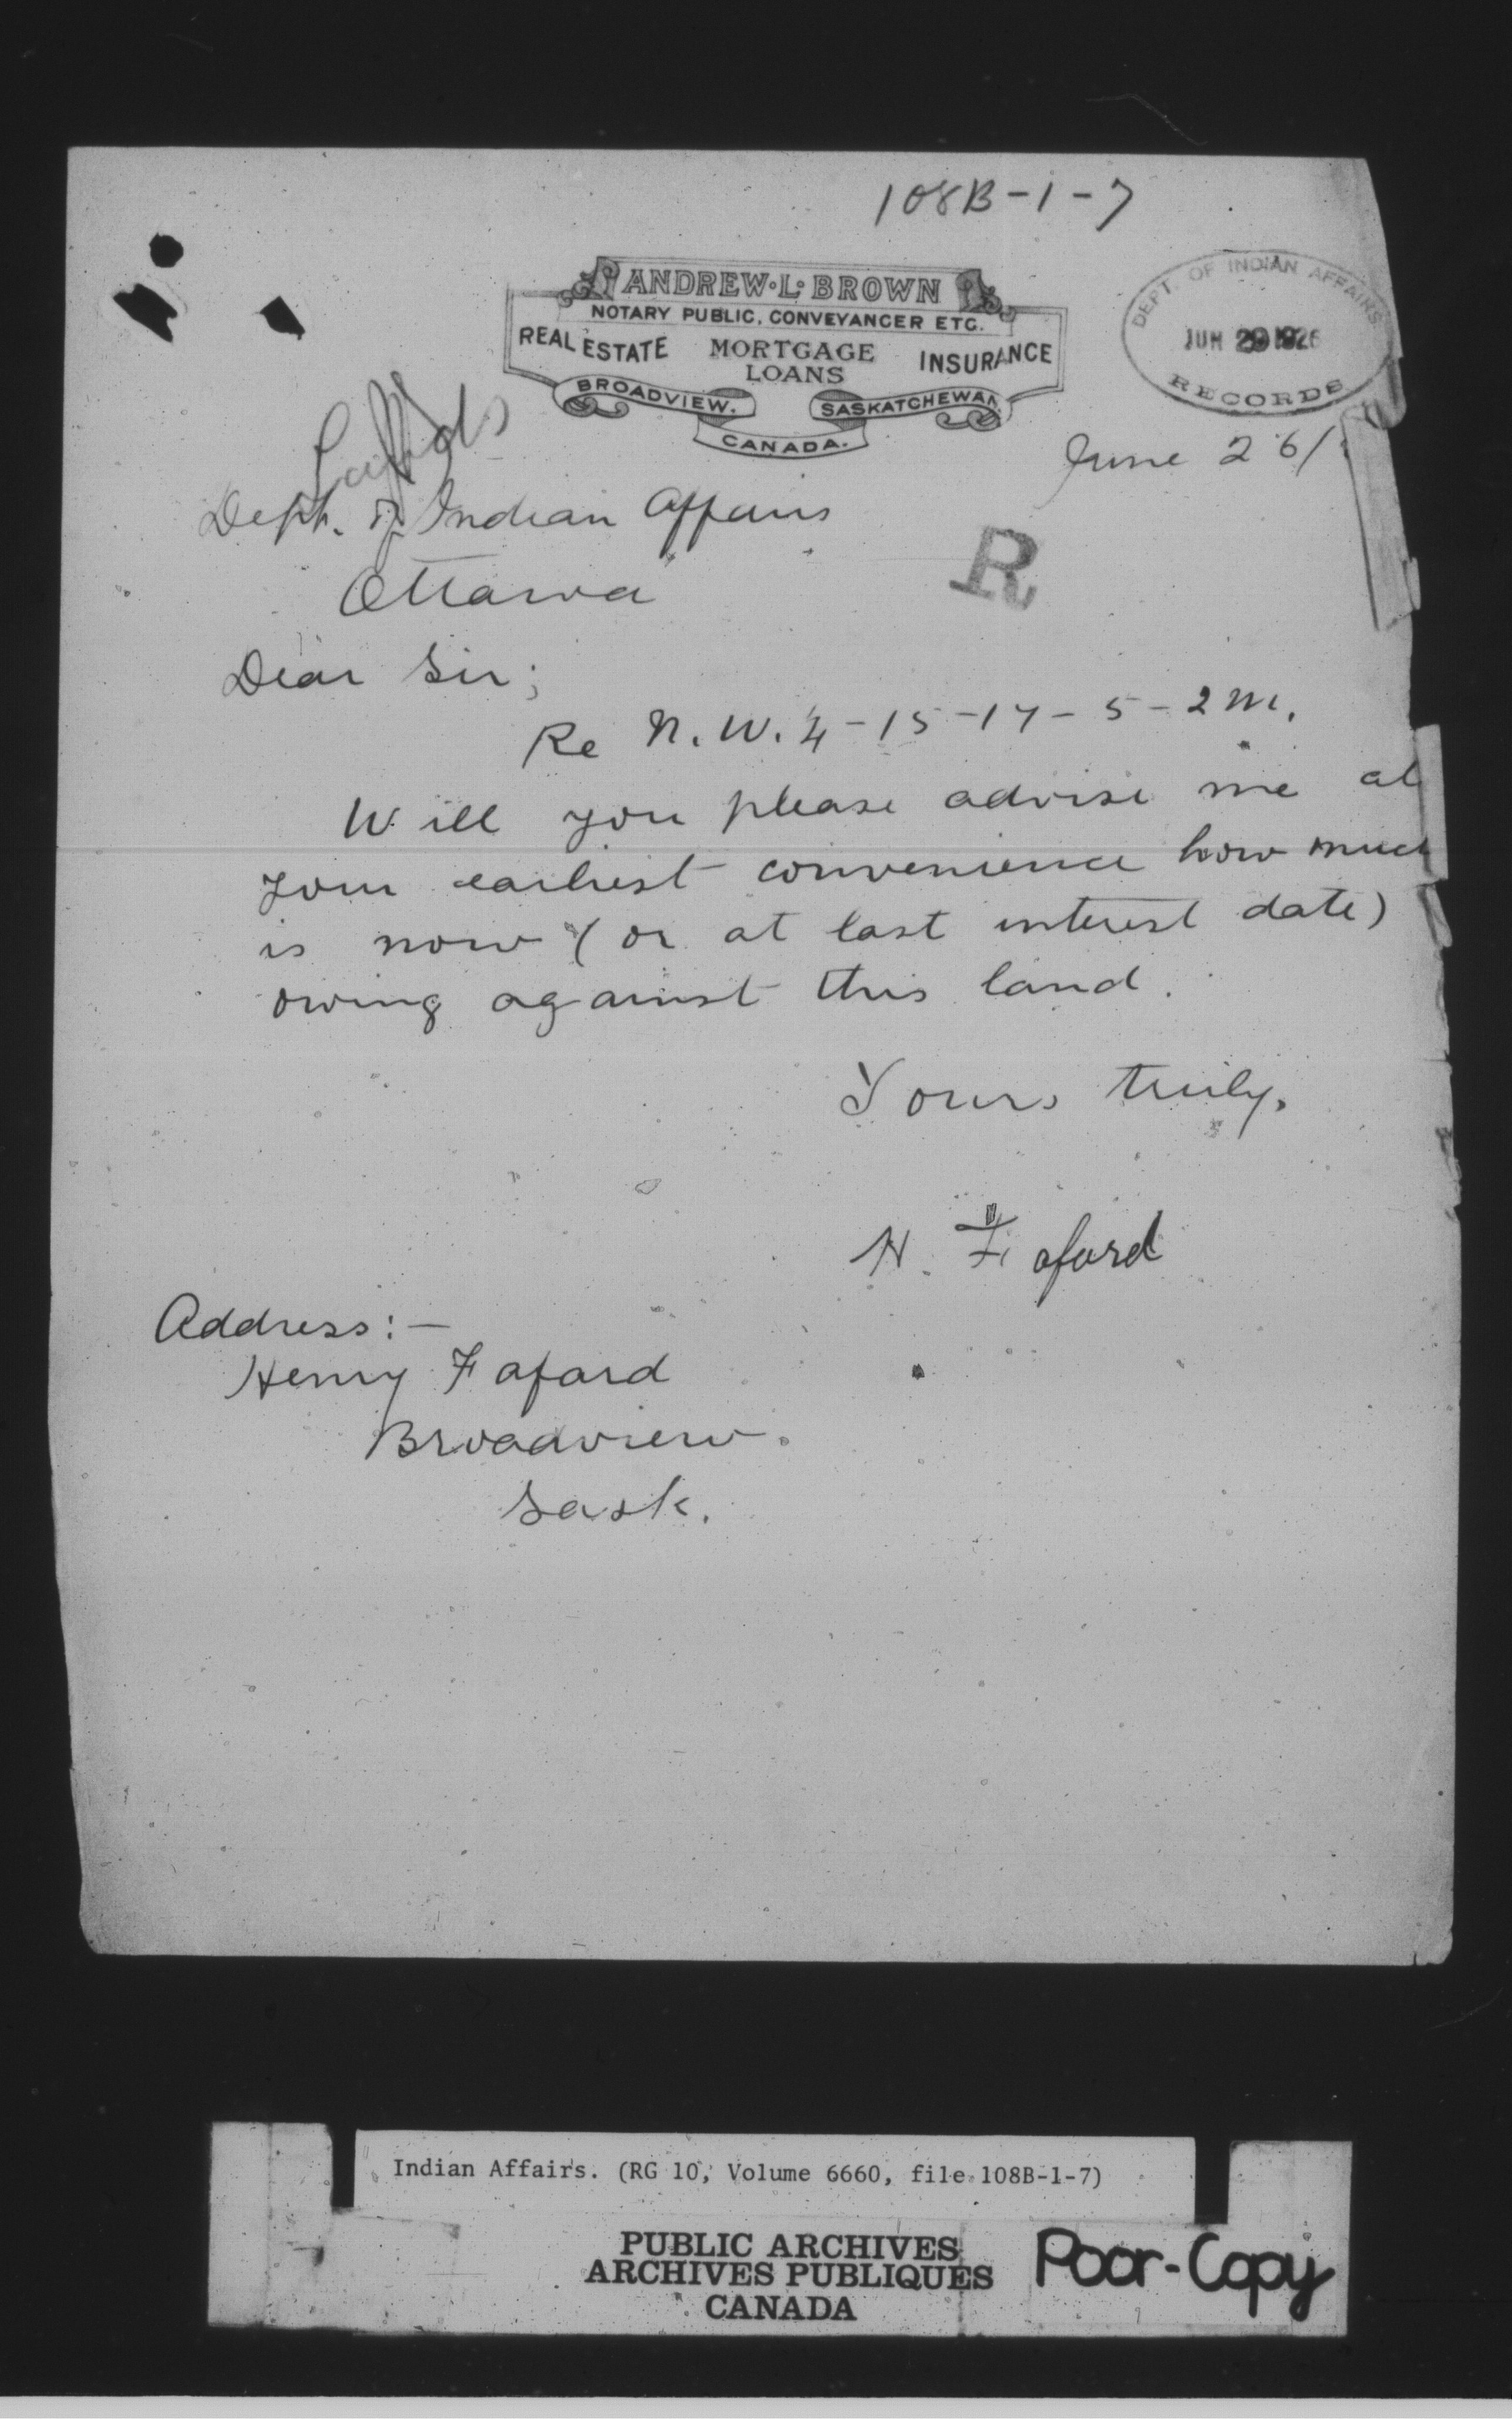 108B-1-7
ANDREW·L·BROWN
NOTARY PUBLIC, CONVEYANCER ETC.
REAL ESTATE MORTGAGE LOANS INSURANCE
BROADVIEW. SASKATCHEWAN.
CANADA.
DEPT. OF INDIAN AFFAIRS
JUN 29 1926
RECORDS
June 26/
Dept. of Indian Affairs
Ottawa
R
Dear Sir;
Re N.W. 4-15-17-5-2 M.
Will you please advise me at
your earliest convenience how much
is now (or at last interest date)
owing against this land.
Yours truly,
H. Faford
Address:-
Henry Fafard
Broadview.
Sask.
Indian Affairs. (RG 10, Volume 6660, file 108B-1-7)
PUBLIC ARCHIVES
ARCHIVES PUBLIQUES
CANADA
Poor-Copy